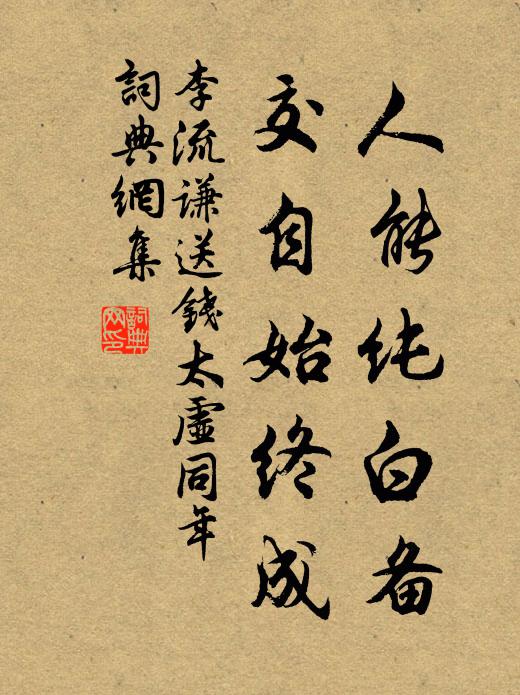 人能纯白备
交自始终成
李流谦送錢太虚同年
詞典網集
詞典网印